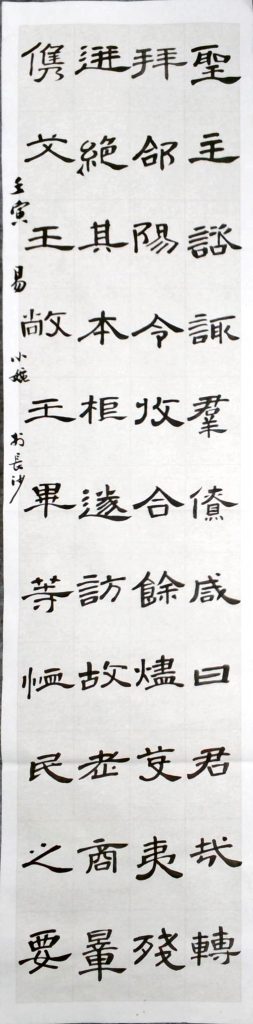 聖主諮諏羣僚咸曰君哉轉
拜郃陽令收合餘燼芟夷殘
迸絕其本柢遂訪故老商暈
儁艾王敞王畢等恤民之要
壬寅 易小婉 於長沙